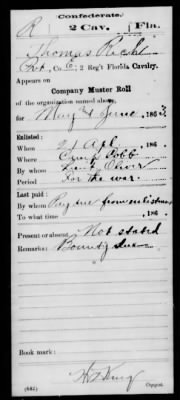 Confederate.
R 2 Cav. Fla.
Thomas
Pvt, Co. G, 2 Reg't Florida Cavalry.
Appears on
Company Muster Roll
of the organization named above,
for May & June, 186
Enlisted:
When 186
Where Camp Cobb
By whom Lieut Oliver
Period For the war.
Last paid:
By whom Pay due from enlistment
To what time 186 .
Present or absent Not stated
Remarks: Bounty due
Book mark:
(642) Copyist.